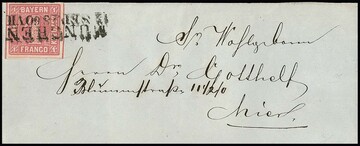 BAYERN
FRANCO
MÜNCHEN
Sr Wohlgeboren
Herrn Dr. Gotthelf
Blumenstraße
hier